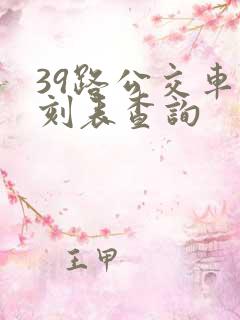 39路公交車
刻表查詢
王甲